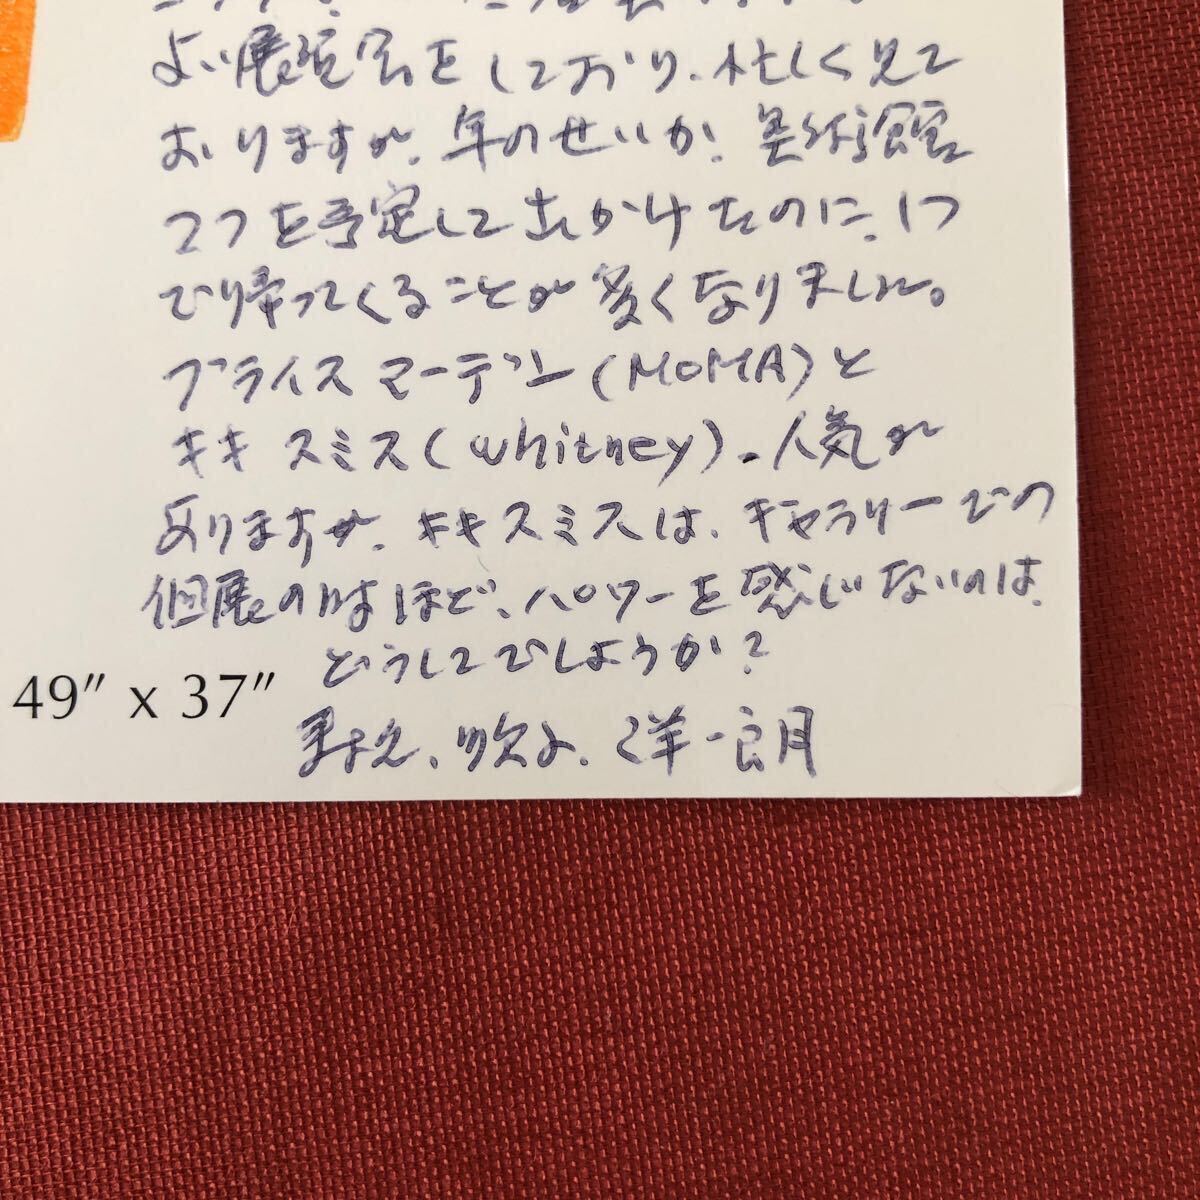 よい展覧会をしており、忙しく見て
おりますが、年のせいか、美術館
2つを予定して出かけたのに、1つ
で帰ってくることが多くなりました。
ブライス マーデン(MOMA)と
キキ スミス(Whitney)、人気が
ありますが、キキ スミスは、ギャラリーでの
個展の時ほど、パワーを感じないのは、
どうしてでしょうか?
49" x 37"
洋一朗